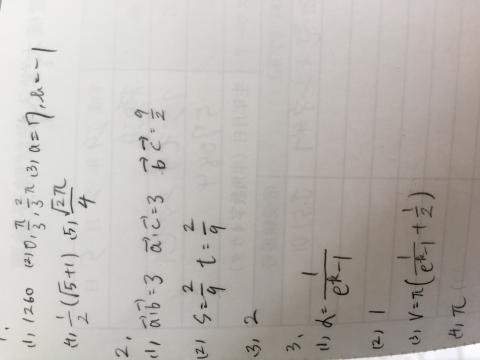 1.
(1) 1260 (2) 0, π/3, 2/3 π (3) a=7, b=-1
(4) 1/2 (√5+1) (5) √2π/4
2.
(1) a⃗·b⃗=3 a⃗·c⃗=3 b⃗·c⃗=9/2
(2) s=2/9 t=2/9
(3) 2
3.
(1) α=1/(e^k-1)
(2) 1
(3) V=π(1/(e^k-1)+1/2)
(4) π